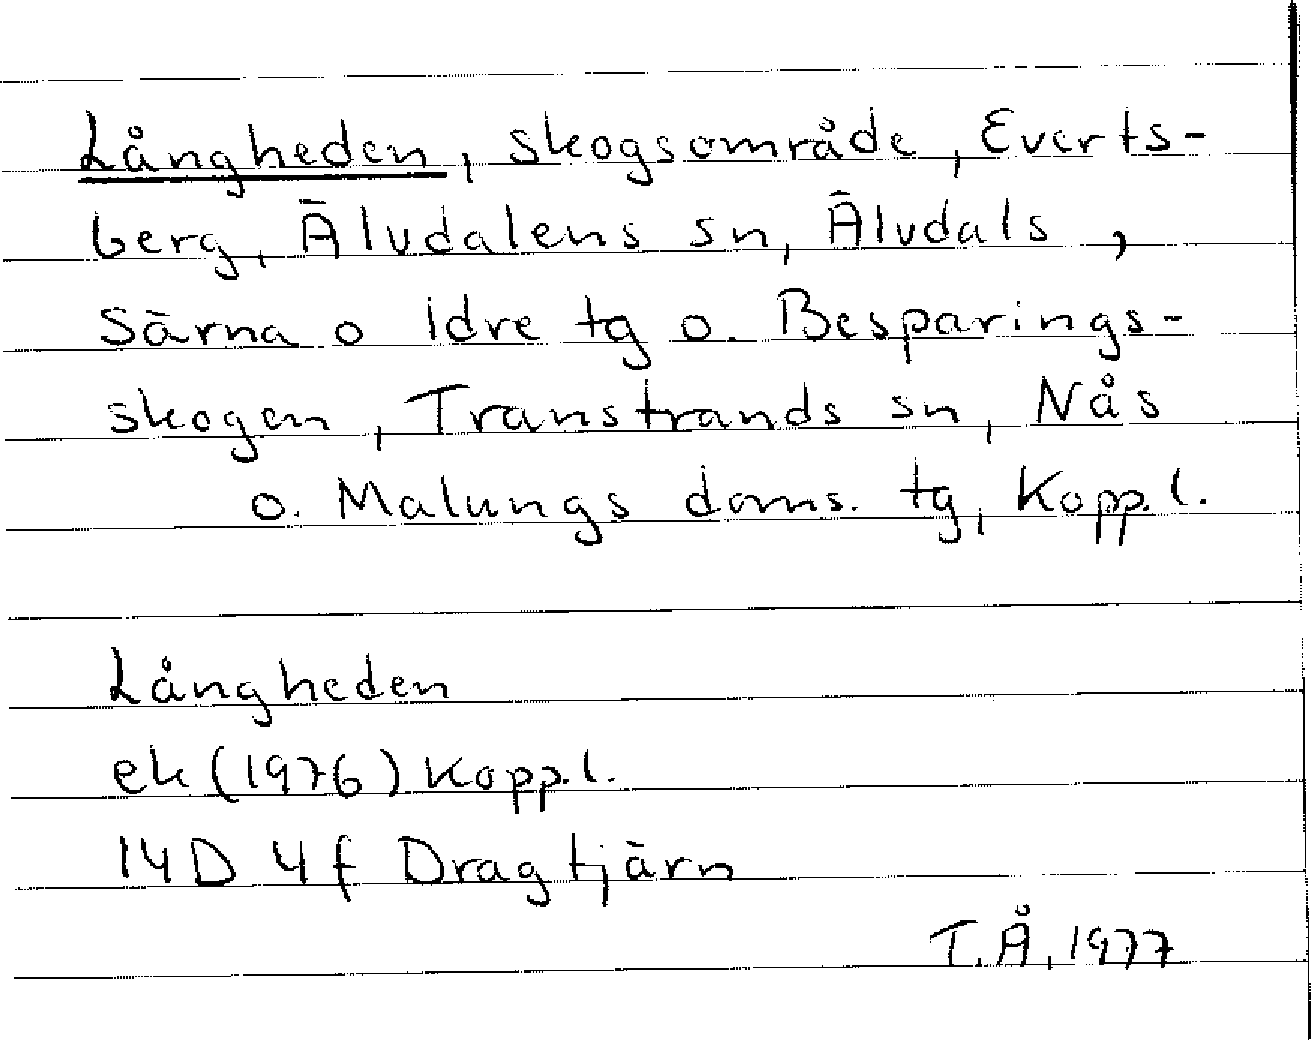 Långheden, skogsområde, Everts-
berg, Älvdalens sn, Älvdals,
Särna o Idre tg o. Besparings-
skogen, Transtrands sn, Nås
o. Malungs doms. tg, Kopp.l.
Långheden
ek (1976) Kopp.l.
14D 4f Dragtjärn
T.Å, 1977